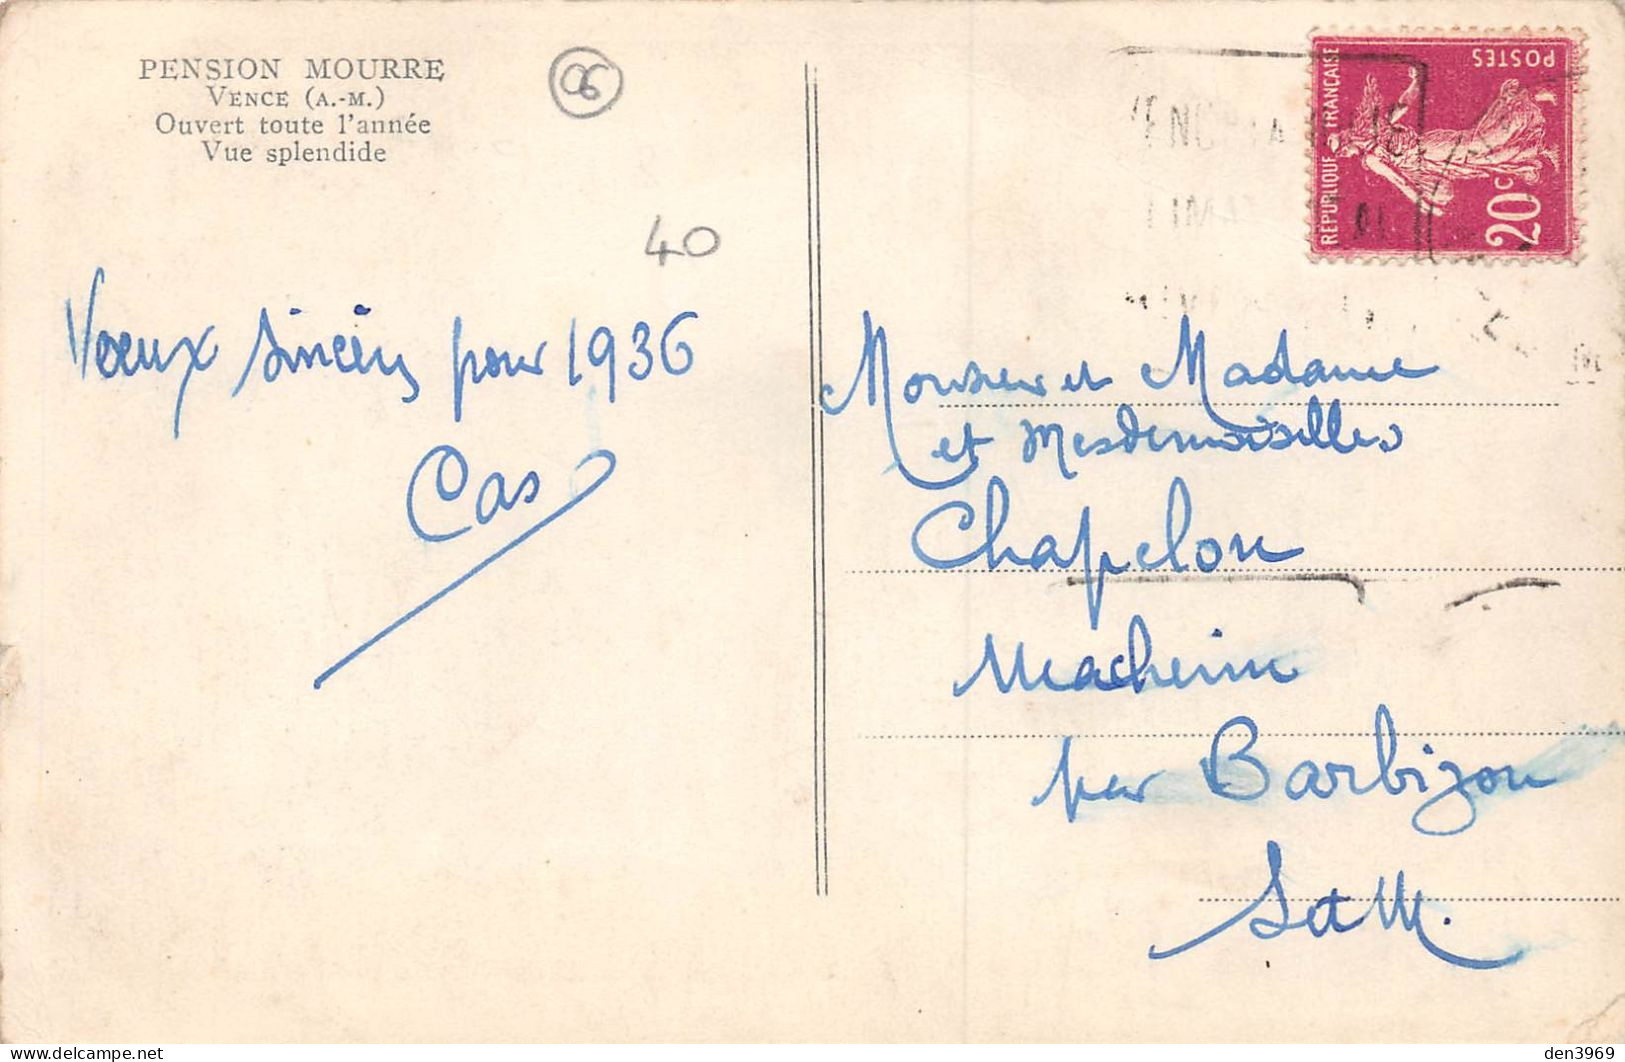 PENSION MOURRE
VENCE (A.-M.)
Ouvert toute l'année
Vue splendide
06
40
Voeux sincères pour 1936
Cas
REPUBLIQUE FRANÇAISE
POSTES
20c
Monsieur et Madame
et Mesdemoiselles
Chapelon
Macherin
par Barbizon
S et M.
den3969